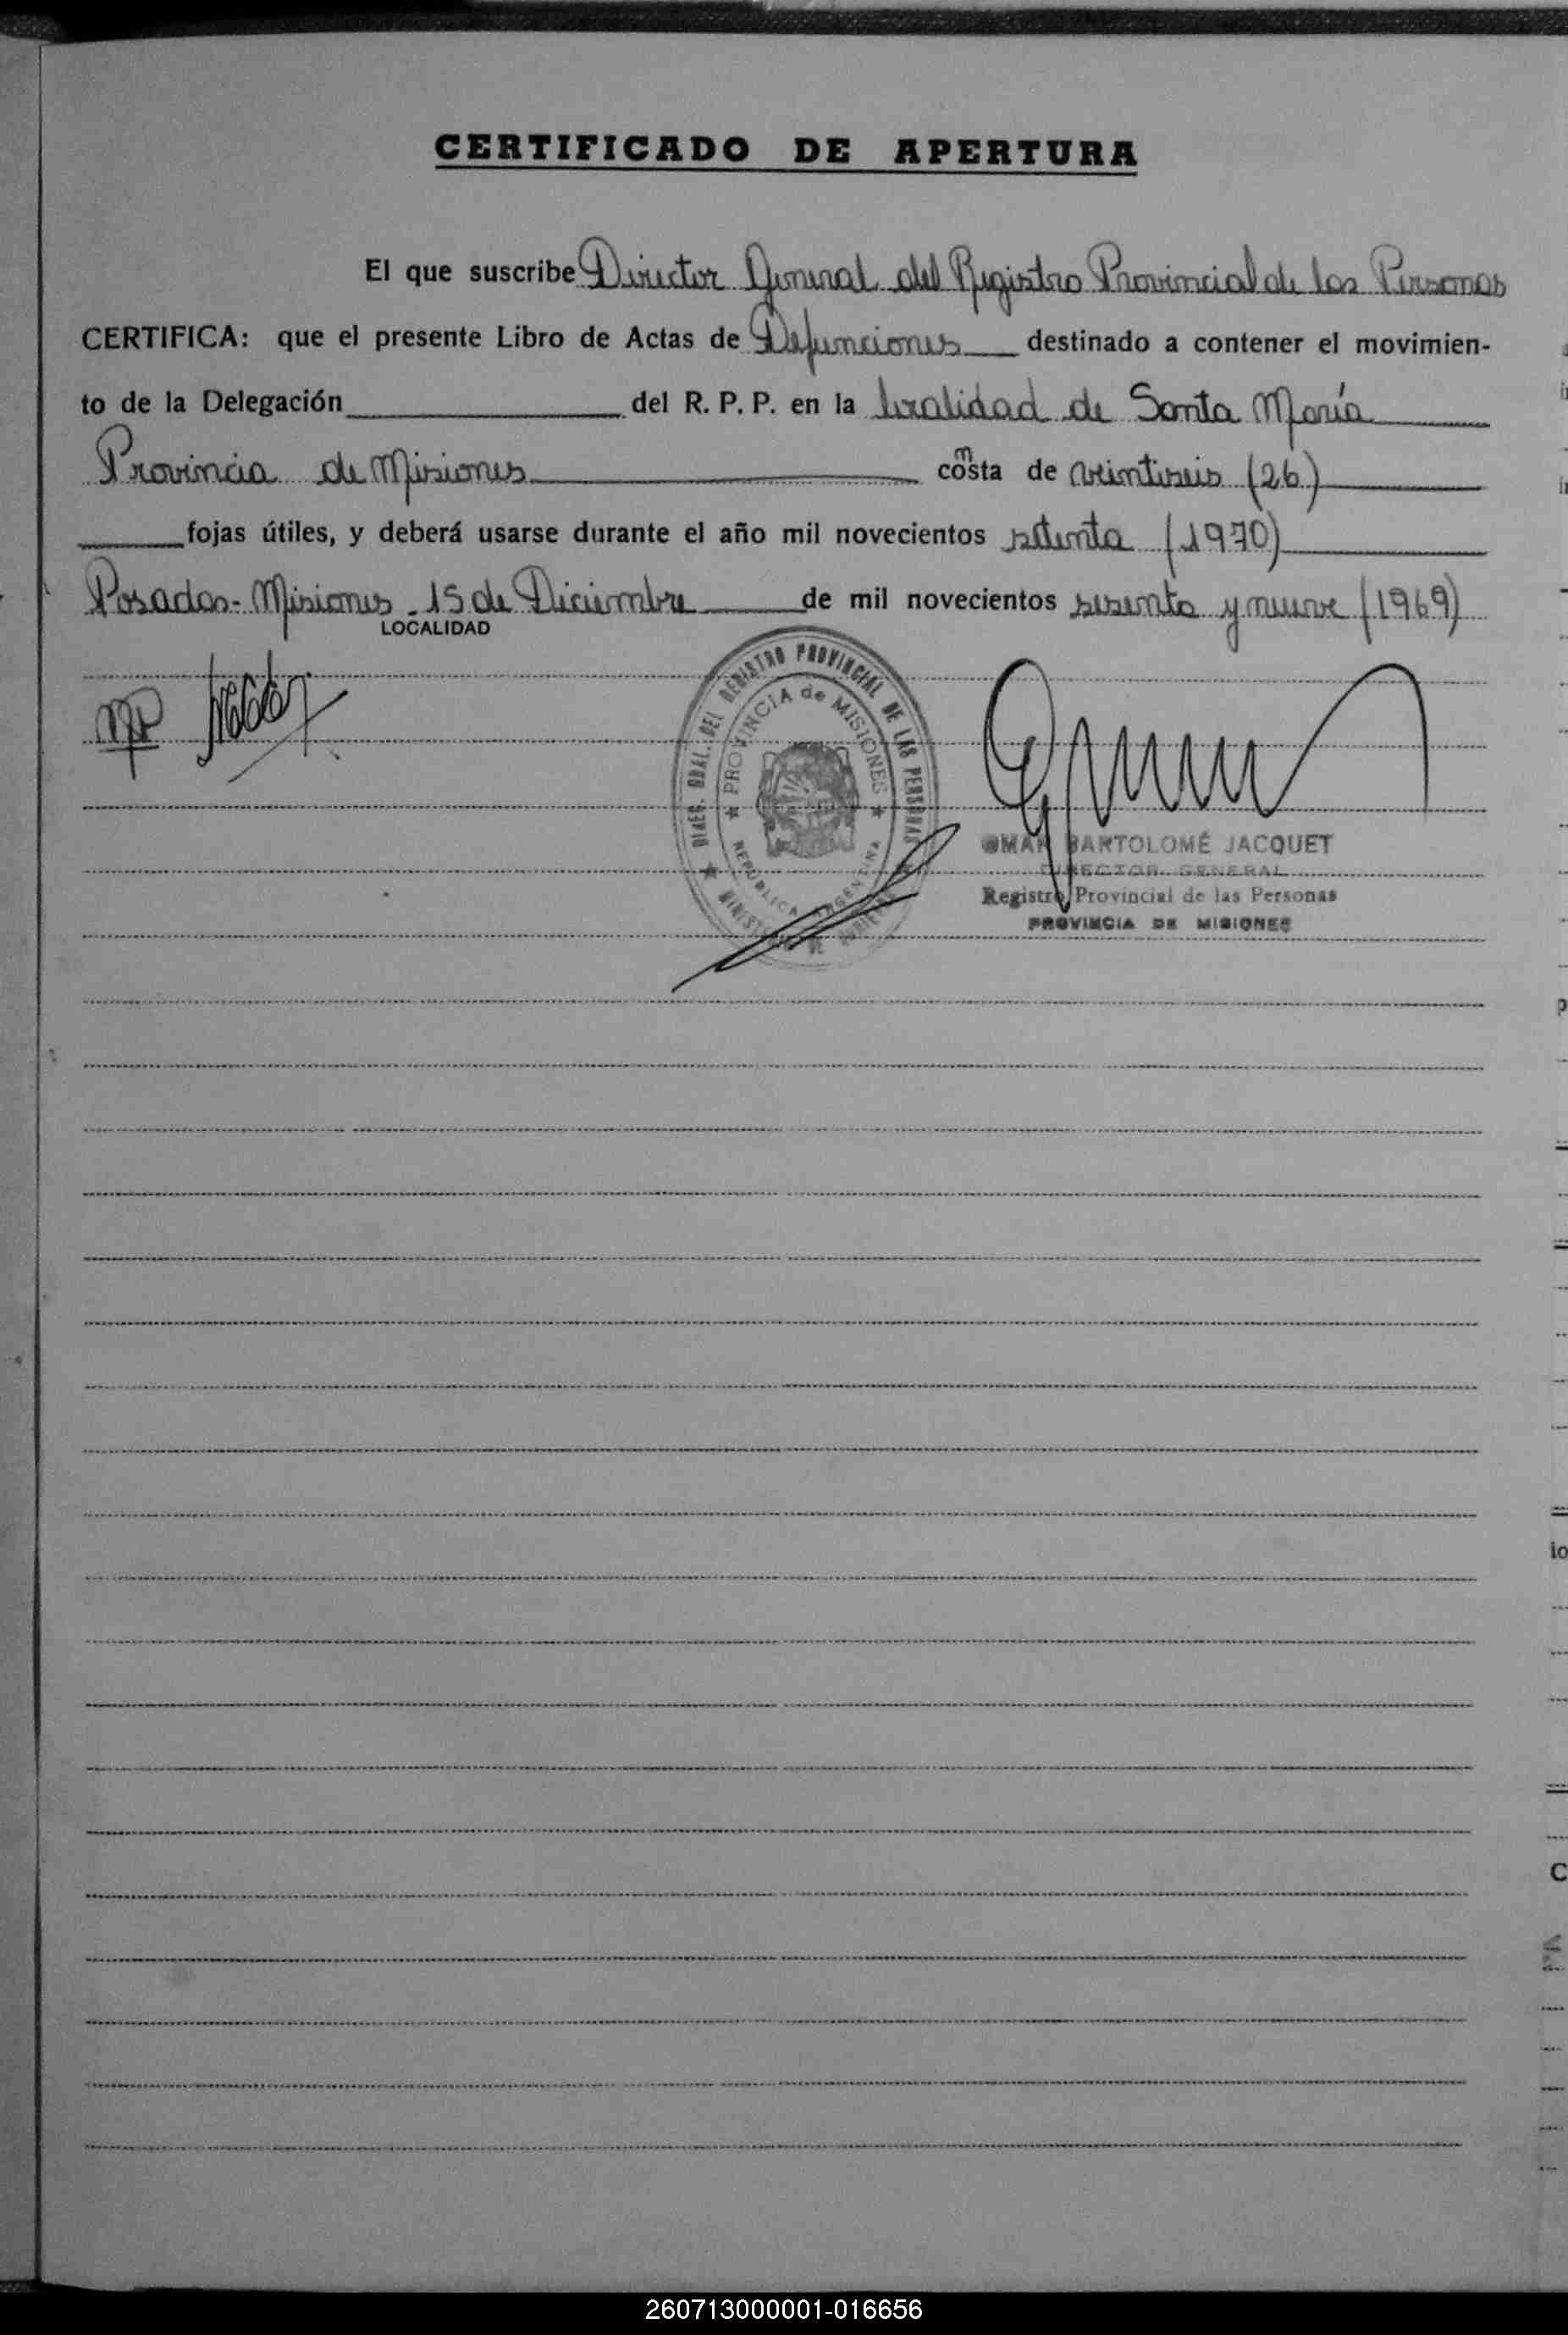 CERTIFICADO DE APERTURA
El que suscribe Director General del Registro Provincial de las Personas
CERTIFICA: que el presente Libro de Actas de Defunciones destinado a contener el movimien-
to de la Delegación del R. P. P. en la localidad de Santa María
Provincia de Misiones consta de veintiseis (26)
fojas útiles, y deberá usarse durante el año mil novecientos setenta (1970)
Posadas - Misiones - 15 de Diciembre de mil novecientos sesenta y nueve (1969)
LOCALIDAD
DIREC. GRAL. DEL REGISTRO PROVINCIAL DE LAS PERSONAS
PROVINCIA de MISIONES
REPUBLICA ARGENTINA
OMAR BARTOLOMÉ JACQUET
DIRECTOR GENERAL
Registro Provincial de las Personas
PROVINCIA DE MISIONES
260713000001-016656